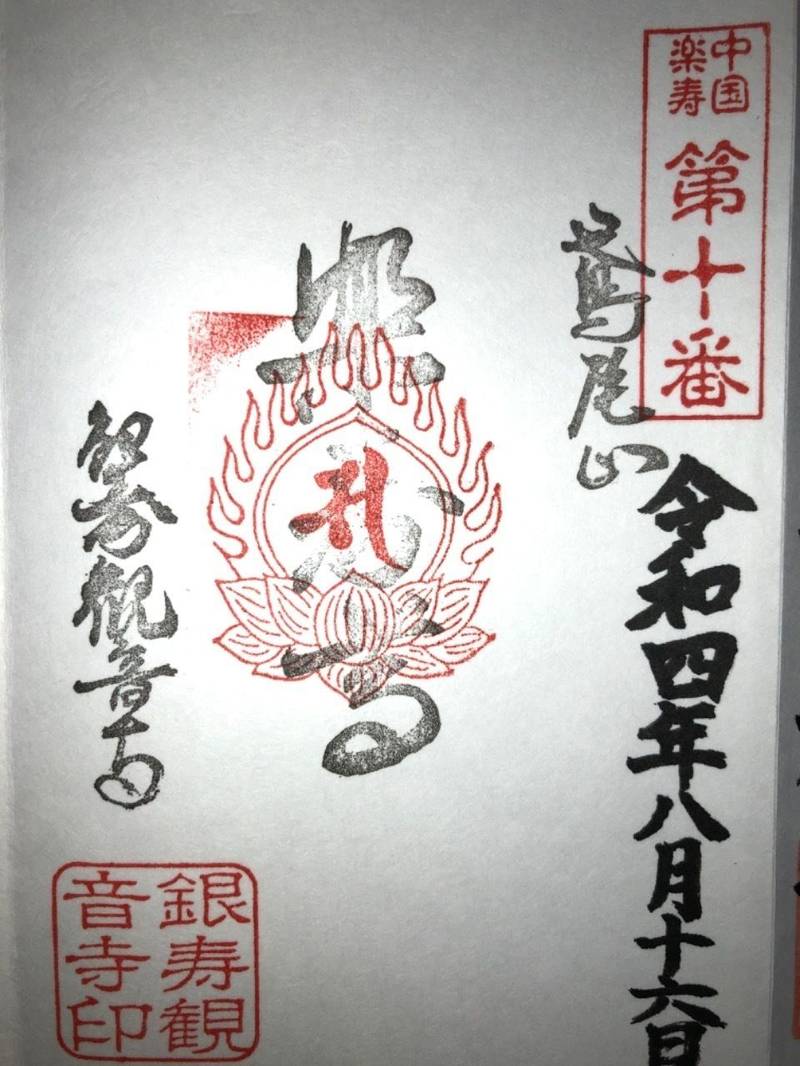 中国
楽寿
第十番
鷲尾山
令和四年八月十六日
觀音寺
銀寿観
音寺印